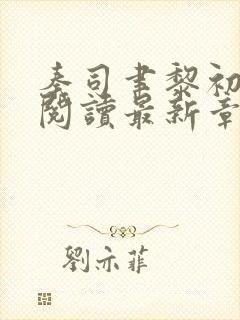 秦司聿黎初
閱讀最新章
劉亦菲